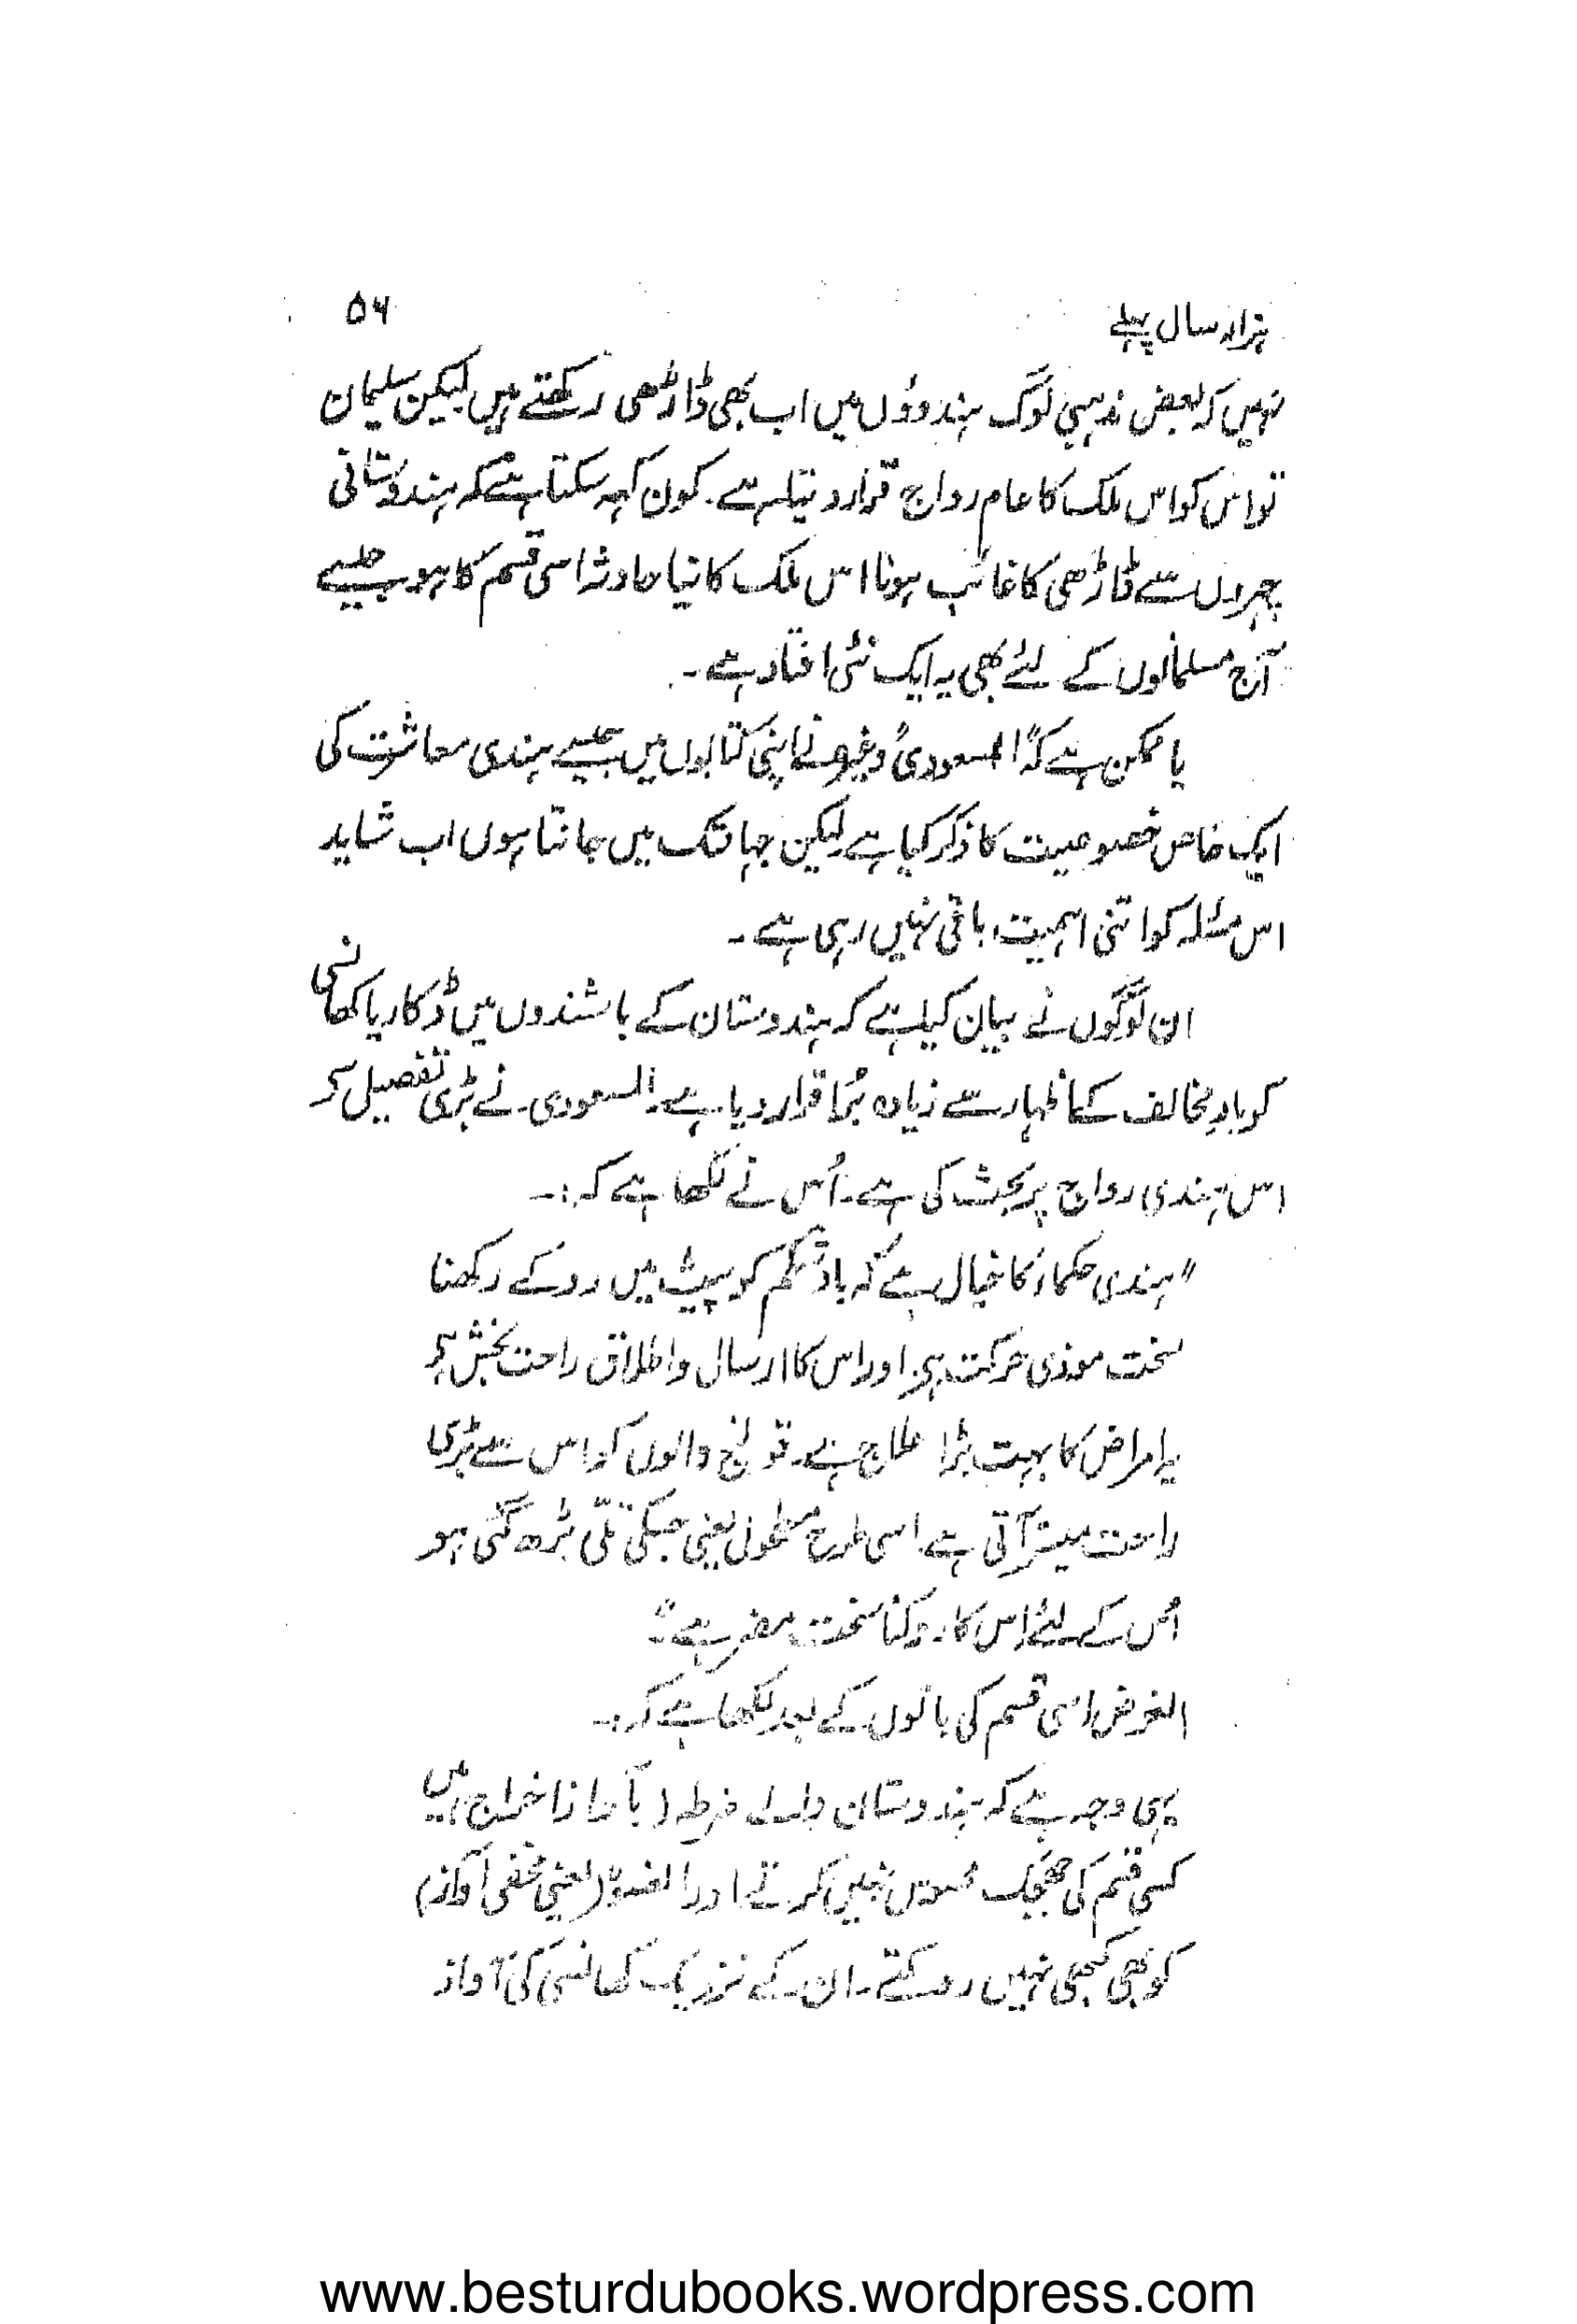 ہزار سال پہلے ۵۶
نہیں کہ بعض مذہبی لوگ ہندوؤں میں اب بھی ڈاڑھی رکھتے ہیں لیکن سلیمان
تو اس کو اس ملک کا عام رواج قرار دیتا ہے۔ کون کہہ سکتا ہے کہ ہندوستانی
چہروں سے ڈاڑھی کا غائب ہونا اس ملک کا نیا حادثہ اسی قسم کا ہو جیسے
آج مسلمانوں کے لئے بھی یہ ایک نئی افتاد ہے۔
یا ممکن ہے کہ "المسعودی" وغیرہ نے اپنی کتابوں میں جیسے ہندی معاشرت کی
ایک خاص خصوصیت کا ذکر کیا ہے لیکن جہانتک میں جانتا ہوں اب شاید
اس مسئلہ کو اتنی اہمیت باقی نہیں رہی ہے۔
ان لوگوں نے بیان کیا ہے کہ ہندوستان کے باشندوں میں ڈکار یا کھانسی
کو بادِ مخالف کے اظہار سے زیادہ بُرا قرار دیا ہے۔ المسعودی نے بڑی تفصیل سے
اس ہندی رواج پر بحث کی ہے۔ اُس نے لکھا ہے کہ:۔
"ہندی حکماء کا خیال ہے کہ بادِ شکم کو پیٹ میں روکے رکھنا
سخت موذی حرکت ہے اور اس کا ارسال و اطلاق راحت بخش ہے
یہ امراض کا بہت بڑا علاج ہے۔ قولنج والوں کو اس سے بڑی
راحت میسر آتی ہے اسی طرح مطحول یعنی جسکی تلّی بڑھ گئی ہو
اُس کے لئے اس کا روکنا سخت مضر ہے"۔
الغرض اسی قسم کی باتوں کے بعد لکھا ہے کہ:۔
یہی وجہ ہے کہ ہندوستان والے ضرطہ (بآواز اخراج) میں
کسی قسم کی جھجک محسوس نہیں کرتے اور الفسوۃ (یعنی مخفی آواز)
کو بھی کبھی نہیں روکتے۔ ان کے نزدیک کھانسی کی آواز
www.besturdubooks.wordpress.com